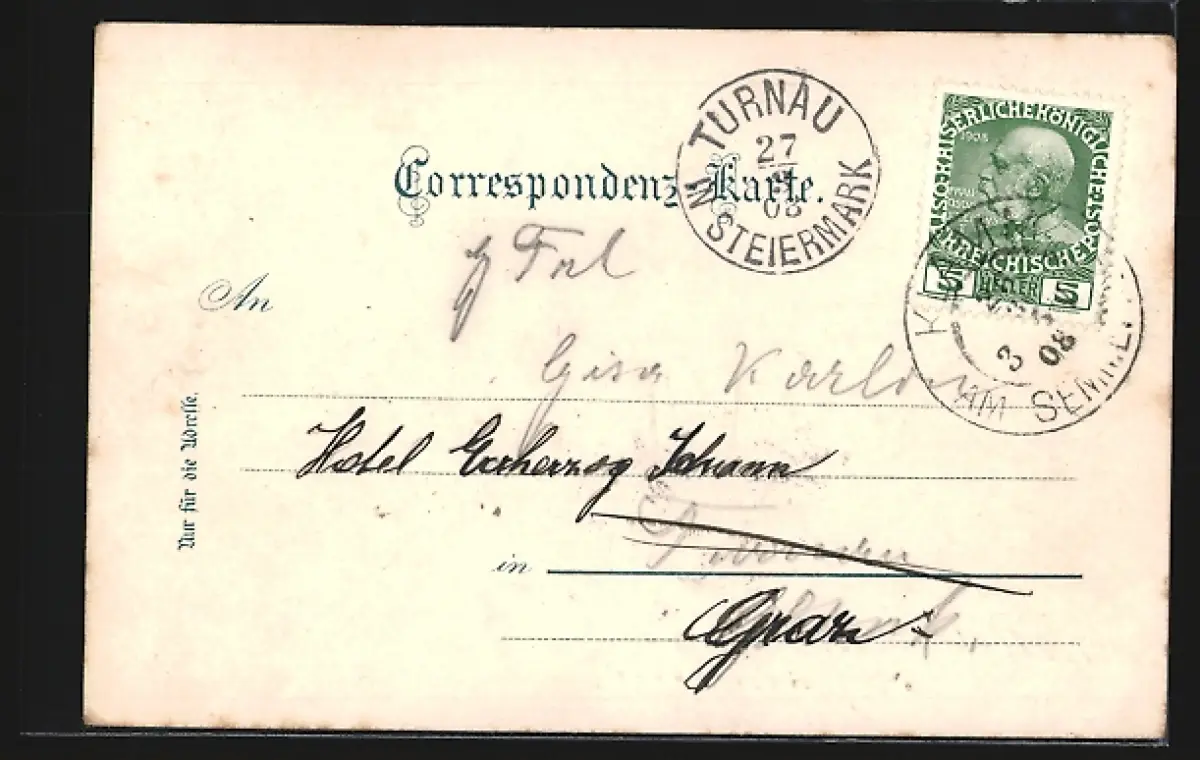 Correspondenz-Karte.
TURNAU
27
08
IN STEIERMARK
KAISERLICHE KÖNIGLICHE ÖSTERREICHISCHE
1908
5 HELLER 5
3 08
AM SEMME
Frl
An
Gisa
Hotel Erzherzog Johann
in
Graz
Nur für die Adresse.